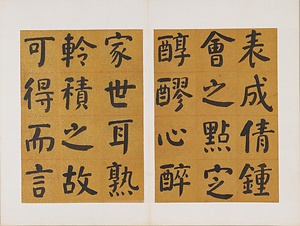 表成倩鍾
會之點㝎
醇醪心醉
家世耳熟
積之故
可得而言